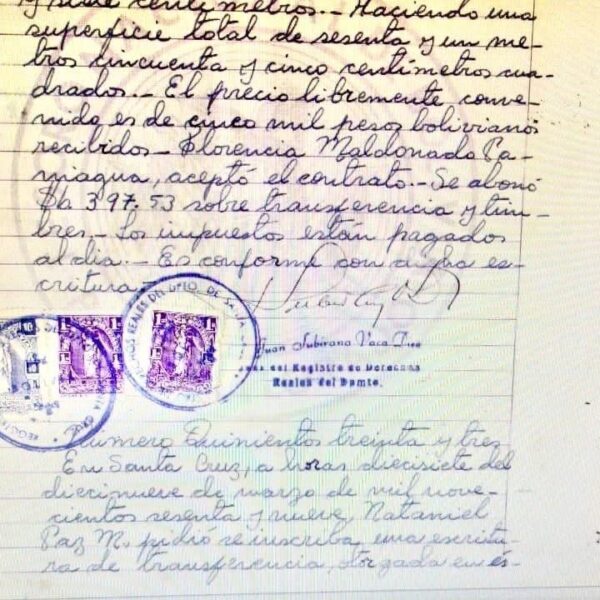 y siete centimetros.- Haciendo una
superficie total de sesenta y un me-
tros cincuenta y cinco centímetros cua-
drados.- El precio libremente conve-
nido es de cinco mil pesos bolivianos
recibidos- Florencia Maldonado Pa-
niagua, aceptó el contrato.- Se abonó
$b 397.53 sobre transferencia y tim-
bres.- Los impuestos están pagados
al día.- Es conforme con dicha es-
critura-
REALES DEL DPTO. DE SANTA
Juan Subirana Vaca Diez
Juez del Registro de Derechos
Reales del Dpmto.
Numero Quinientos treinta y tres
En Santa Cruz, a horas diecisiete del
diecinueve de marzo de mil nove-
cientos sesenta y nueve, Nataniel
Paz M. pidió se inscriba una escritu-
ra de transferencia, otorgada en és-